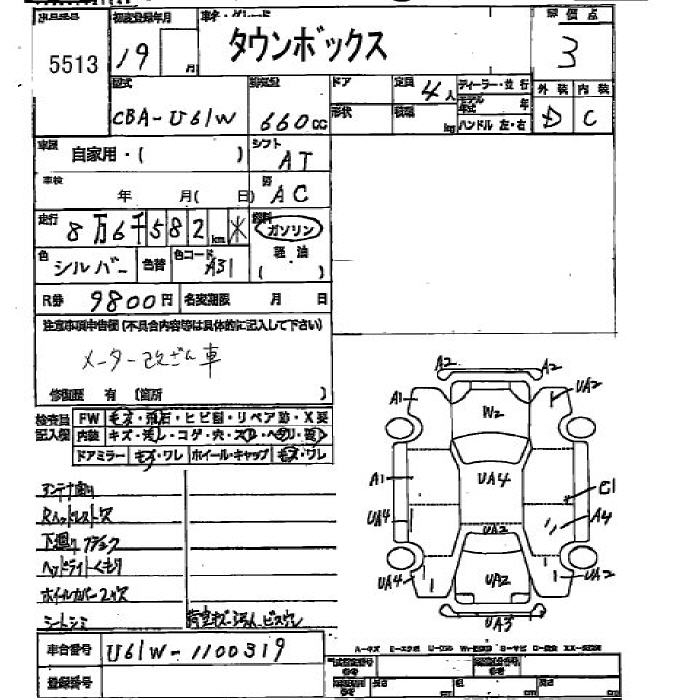 出品番号 初度登録年月 車名・グレード 評価点
5513 19 月 タウンボックス 3
型式 排気量 ドア 定員 4人 ディーラー・並行 外装 内装
CBA-U61W 660cc 形状 積載 kg モデル年式 年 D C
ハンドル 左・右
車歴 自家用・( ) シフト AT
車検 年 月( 日) AC
走行 8万6千582km 燃料 ガソリン
軽油
色 シルバー 色替 色コード A31 ( )
R券 9800円 名変期限 月 日
注意事項申告欄(不具合内容等は具体的に記入して下さい)
メーター改ざん車
修復歴 有 (箇所 )
検査員 FW キズ・飛石・ヒビ割・リペア跡・X要
記入欄 内装 キズ・汚レ・コゲ・穴・スレ・ヘタリ・臭
ドアミラー キズ・ワレ ホイール・キャップ キズ・ワレ
A2 A2
A1 UA2
W2
A1 UA4 C1
UA4 A4
UA2
UA4 UA2 UA2
UA3
下廻り
ヘッドライトくもり
ホイルカバー
シートシミ
車台番号 U61W-1100319
登録番号